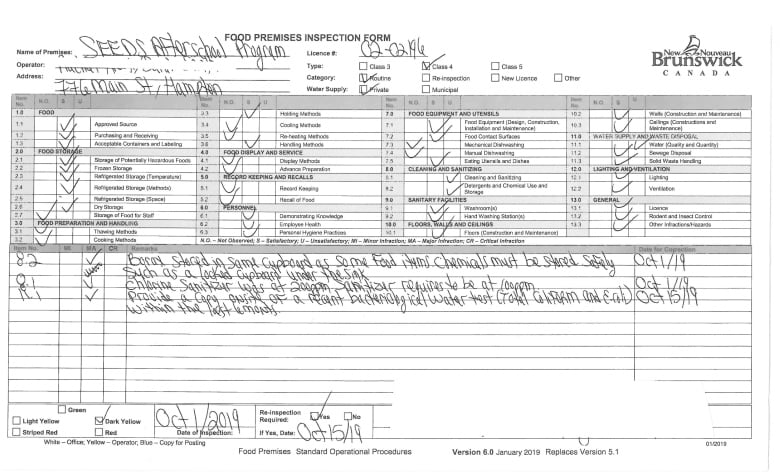 FOOD PREMISES INSPECTION FORM
Name of Premises: SEEDS Afterschool Program Licence #: 02-02196
Operator: Type: Class 3 Class 4 Class 5
Address: Main St / Hampton Category: Routine Re-inspection New Licence Other
Water Supply: Private Municipal
New Nouveau Brunswick
CANADA
Item No. N.O. S U
1.0 FOOD
1.1 Approved Source
1.2 Purchasing and Receiving
1.3 Acceptable Containers and Labeling
2.0 FOOD STORAGE
2.1 Storage of Potentially Hazardous Foods
2.2 Frozen Storage
2.3 Refrigerated Storage (Temperature)
2.4 Refrigerated Storage (Methods)
2.5 Refrigerated Storage (Space)
2.6 Dry Storage
2.7 Storage of Food for Staff
3.0 FOOD PREPARATION AND HANDLING
3.1 Thawing Methods
3.2 Cooking Methods
Item No. N.O. S U
3.3 Holding Methods
3.4 Cooling Methods
3.5 Re-heating Methods
3.6 Handling Methods
4.0 FOOD DISPLAY AND SERVICE
4.1 Display Methods
4.2 Advance Preparation
5.0 RECORD KEEPING AND RECALLS
5.1 Record Keeping
5.2 Recall of Food
6.0 PERSONNEL
6.1 Demonstrating Knowledge
6.2 Employee Health
6.3 Personal Hygiene Practices
Item No. N.O. S U
7.0 FOOD EQUIPMENT AND UTENSILS
7.1 Food Equipment (Design, Construction, Installation and Maintenance)
7.2 Food Contact Surfaces
7.3 Mechanical Dishwashing
7.4 Manual Dishwashing
7.5 Eating Utensils and Dishes
8.0 CLEANING AND SANITIZING
8.1 Cleaning and Sanitizing
8.2 Detergents and Chemical Use and Storage
9.0 SANITARY FACILITIES
9.1 Washroom(s)
9.2 Hand Washing Station(s)
10.0 FLOORS, WALLS AND CEILINGS
10.1 Floors (Construction and Maintenance)
Item No. N.O. S U
10.2 Walls (Construction and Maintenance)
10.3 Ceilings (Constructions and Maintenance)
11.0 WATER SUPPLY AND WASTE DISPOSAL
11.1 Water (Quality and Quantity)
11.2 Sewage Disposal
11.3 Solid Waste Handling
12.0 LIGHTING AND VENTILATION
12.1 Lighting
12.2 Ventilation
13.0 GENERAL
13.1 Licence
13.2 Rodent and Insect Control
13.3 Other Infractions/Hazards
N.O. – Not Observed; S – Satisfactory; U – Unsatisfactory; MI – Minor Infraction; MA – Major Infraction; CR – Critical Infraction
Item No. MI MA CR Remarks Date for Correction
8.2 stored in same cupboard as some food items. Chemicals must be stored safely Oct 1/19
such as a locked cupboard under the sink
8.1 Chlorine Sanitizer was at 200ppm. Sanitizer requires to be at 100ppm. Oct 1/19
11.1 Provide a copy onsite of a recent bacteriological water test (Total Coliform and E.coli) Oct 15/19
within the last 6 months.
Green
Light Yellow Dark Yellow
Striped Red Red
Oct 1/2019
Date of Inspection:
Re-inspection Required: Yes No
If Yes, Date: Oct 15/19
White – Office; Yellow – Operator; Blue – Copy for Posting
01/2019
Food Premises Standard Operational Procedures Version 6.0 January 2019 Replaces Version 5.1